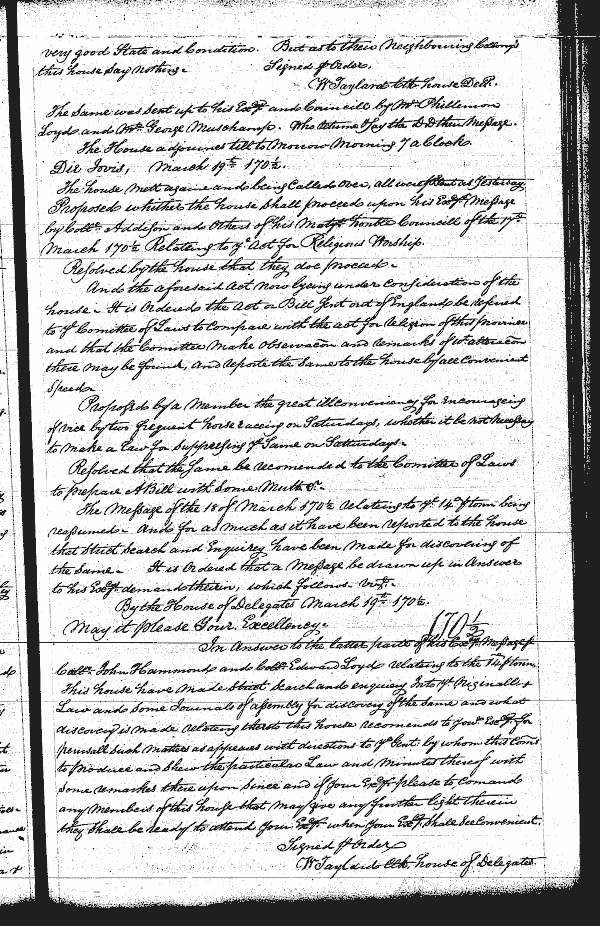 very good State and Condition. But as to their Neighbouring Collonys
this house say nothing. Signed p Order.
W Taylard Clk house Del.
The Same was Sent up to his Exc̃y and Councill by Mr Phillemon
Loyd and Mr George Muschamp. Who returne & say they D D their Message.
The House adjournes till to Morrow Morning 7 a Clock
Die Jovis, March 19th 170½.
The house Mett againe and being Called over, all were present as Yesterday
Proposed whether the house shall proceed upon his Exc̃ys Message
by Coll. Addison and Others of his Matys honble Councill of the 17th
March 170½ Relating to ye Act for Religious Worship.
Resolved by the house that they doe proceed.
And the aforesaid Act now lyeing under Consideration of the
house. It is Ordered the Act or Bill sent out of England be refered
to ye Comittee of Laws to Compare with the act for religion of this Province
and that the Comittee Make Observacon and remarks of wt alteracon
there may be found, and reporte the Same to the house by all Convenient
Speed.
Proposed by a Member the great illconveniency for Encourageing
of vice by two frequent horse raceing on Saturdays, whether it be not necessary
to make a Law for Suppressing ye Same on Satturdays.
Resolved that the Same be recomended to the Comittee of Laws
to prepare A Bill with Some Mulkt &c.
The Message of the 18 of March 170½ relateing to ye 14d p tonn being
reassumed. And for as much as it have been reported to the house
that Strict Search and Enquirey have been Made for discovering of
the Same. It is Ordered that a Message be drawn up in Answer
to his Exc̃ys demand therein, which follows. vizt.
By the House of Delegates March 19th 170½.
May it please Your Excellency. 170½
In Answer to the latter parte of his Exc̃ys Message p
Coll. John Hammond and Coll. Edward Loyd relateing to the 14d p tonn,
This house have Made Strict Search and enquirey Into ye Originall
Law and Some Journals of assembly for discovery of the Same and what
discovery is made relateing thereto this house recomends to Your Exc̃y for
perusall Such Matters as appeares with directions to ye Gent. by whom this Coms
to produce and Shew the particular Law and Minutes thereof with
Some remarkes there upon Since and if Your Exc̃y please to Comand
any Members of this house that May give any further light therein
they Shall be ready to attend Your Exc̃y when Your Exc̃y Shall See Convenient.
Signed p Order
W Taylard Clk. house of Delegates